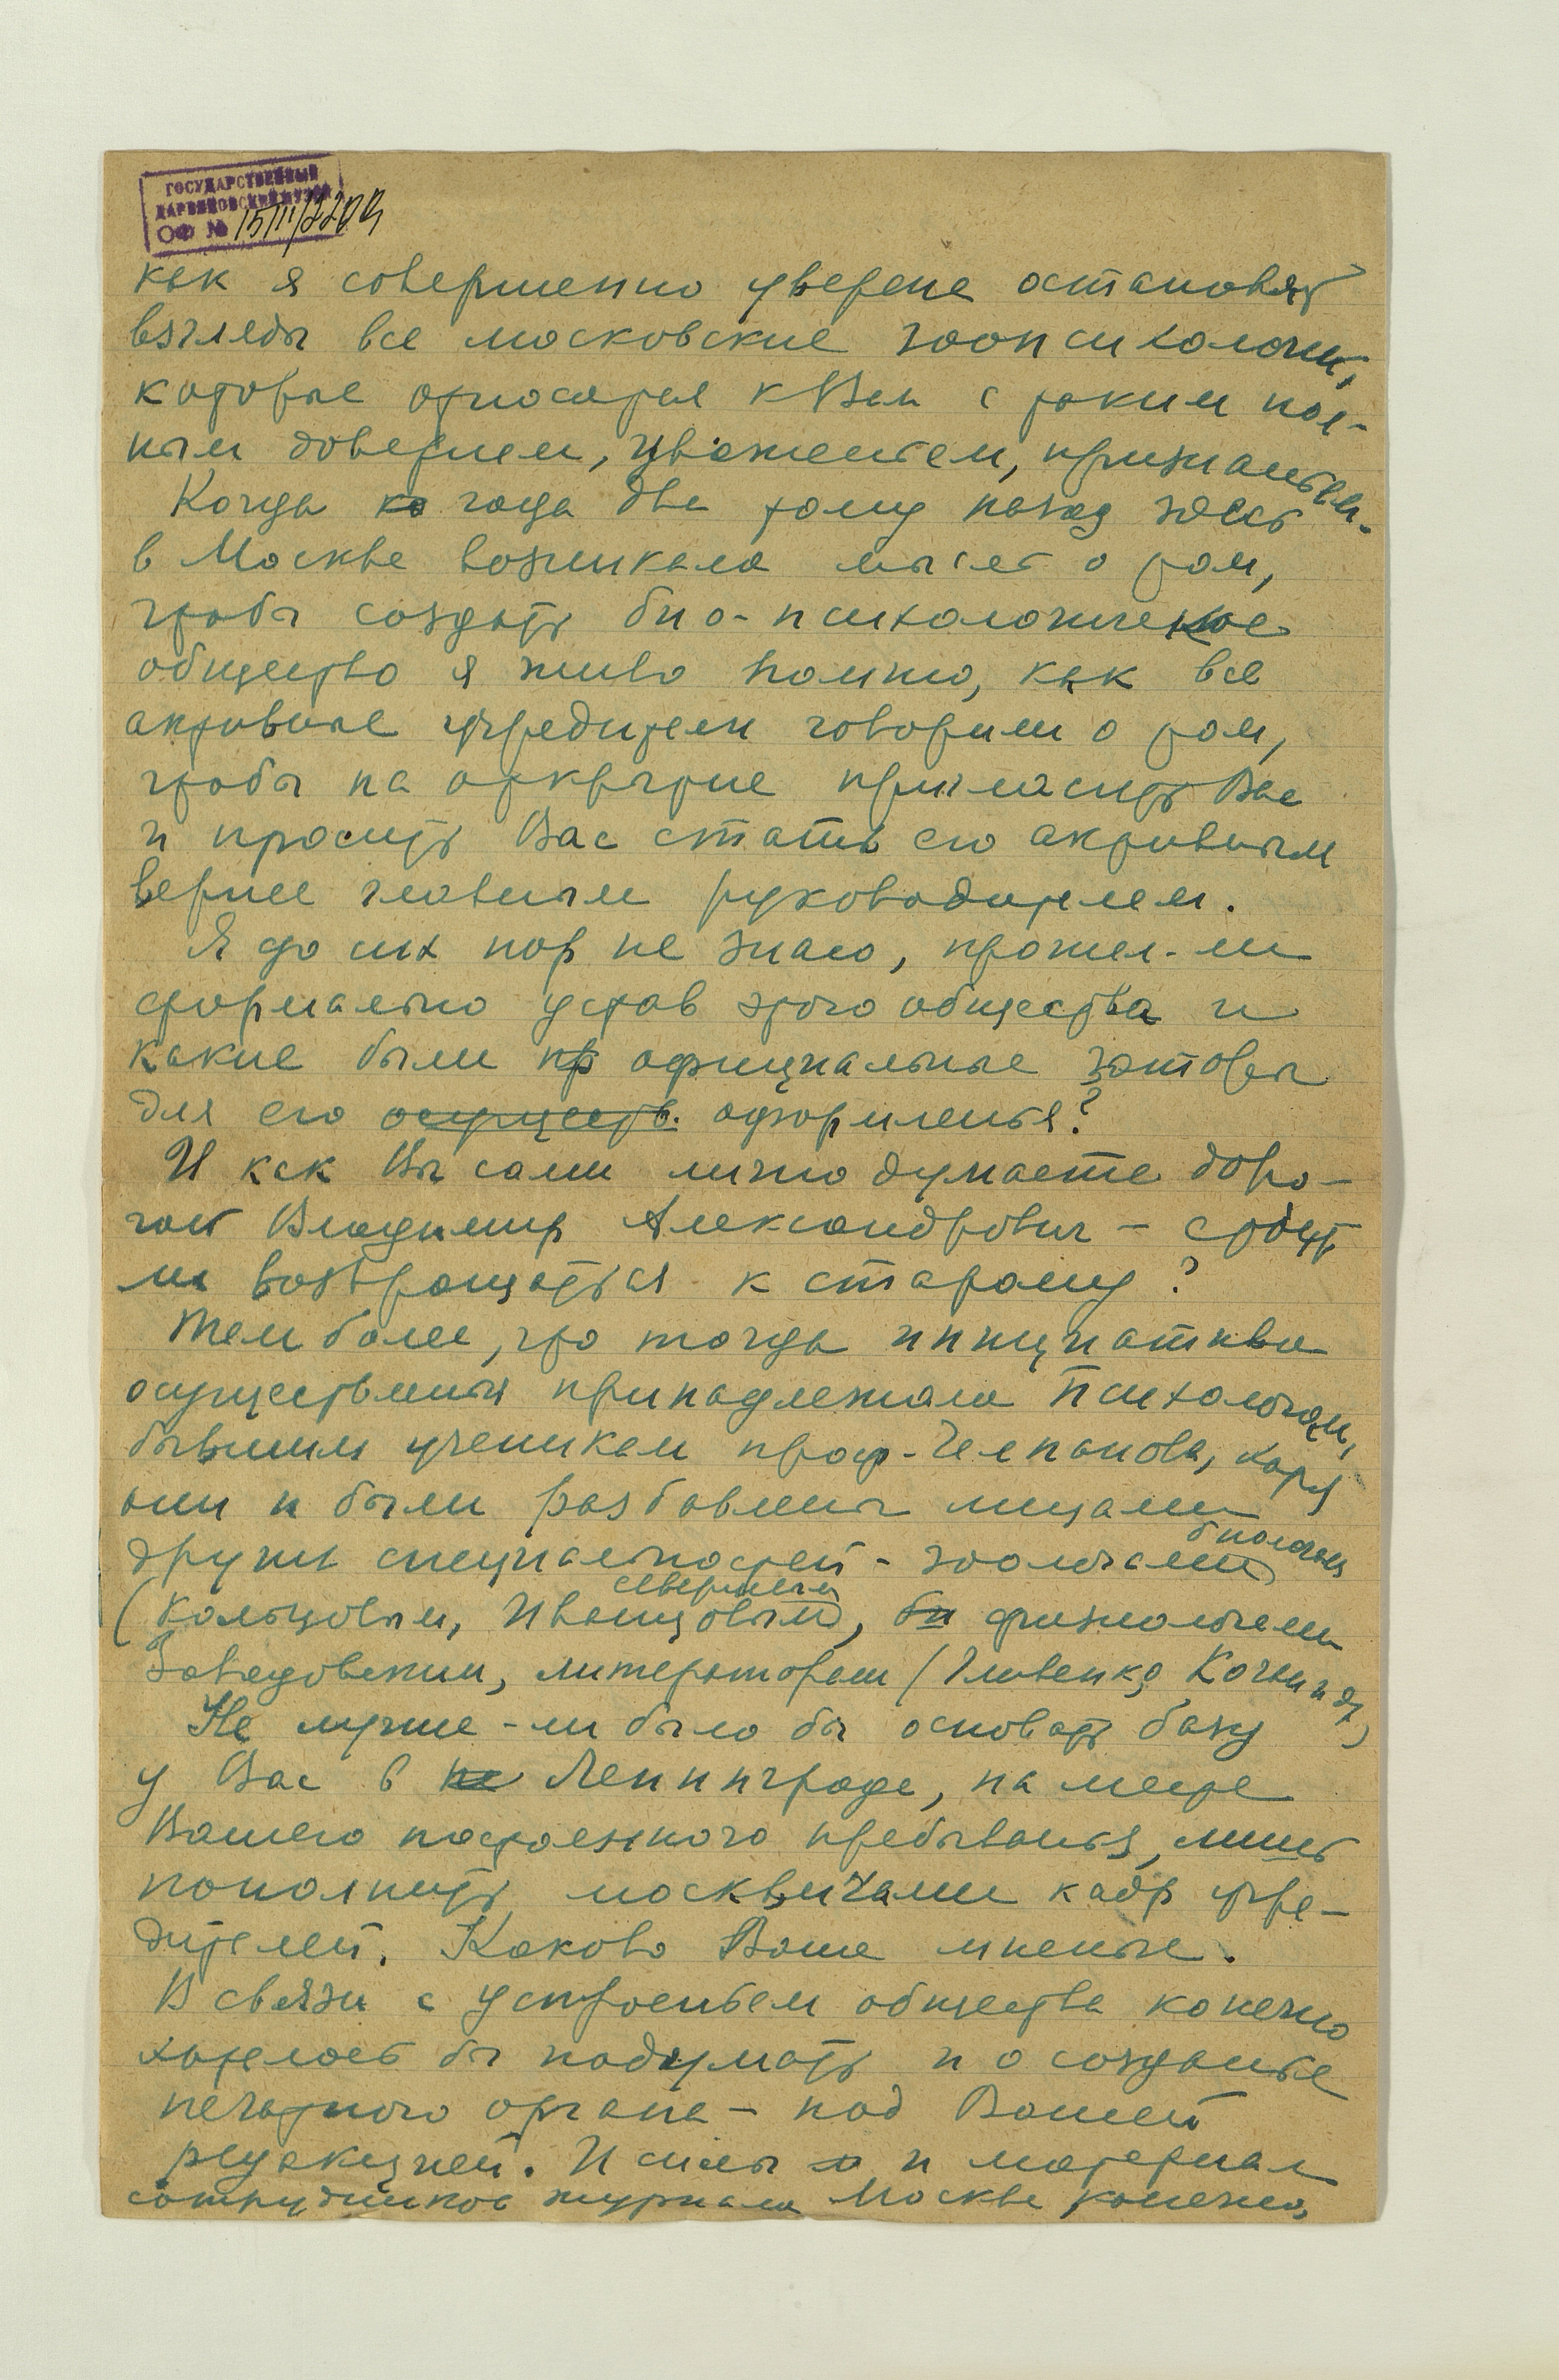 ГОСУДАРСТВЕННЫЙ
ДАРВИНОВСКИЙ МУЗЕЙ
ОФ №
как я совершенно уверена остановят
взгляды все московские зоопсихологи,
которые относятся к Вам с таким пол-
ным доверием, уваженьем,
Когда года два тому назад здесь
в Москве возникала мысль о том,
чтобы создать био-психологическое
общество я живо помню, как все
активные учредители говорили о том,
чтобы на открытие пригласить Вас
и просить Вас стать его активным
вернее главным руководителем.
Я до сих пор не знаю, прошел-ли
формально устав этого общества и
какие были пр официальные
для его осуществ. оформленья?
И как Вы сами лично думаете доро-
гой Владимир Александрович – стоит
ли возвращаться к старому?
Тем более, что тогда инициатива
осуществленья принадлежала психологам,
бывшим ученикам проф. Челпанова, хотя
они и были разбавлены лицами
других специальностей - зоологами биологами
(Кольцовым, Иванцовым, Северцевым), би физиологами
Завадовским, литераторами (Гливенко,
Не лучше-ли было бы основать базу
у Вас в не Ленинграде, на месте
Вашего постоянного пребыванья, лишь
пополнить москвичами кадр учре-
дителей. Каково Ваше мненье.
В связи с устроеньем общества конечно
хотелось бы подумать и о созданье
печатного органа – под Вашей
редакцией. И силы и и материал
сотрудников журнала Москве конечно,